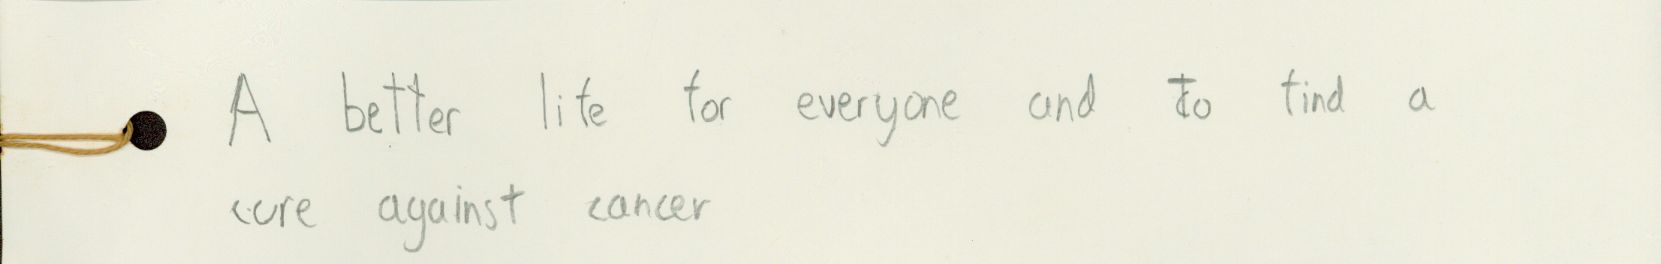 A better life for everyone and to find a
cure against cancer